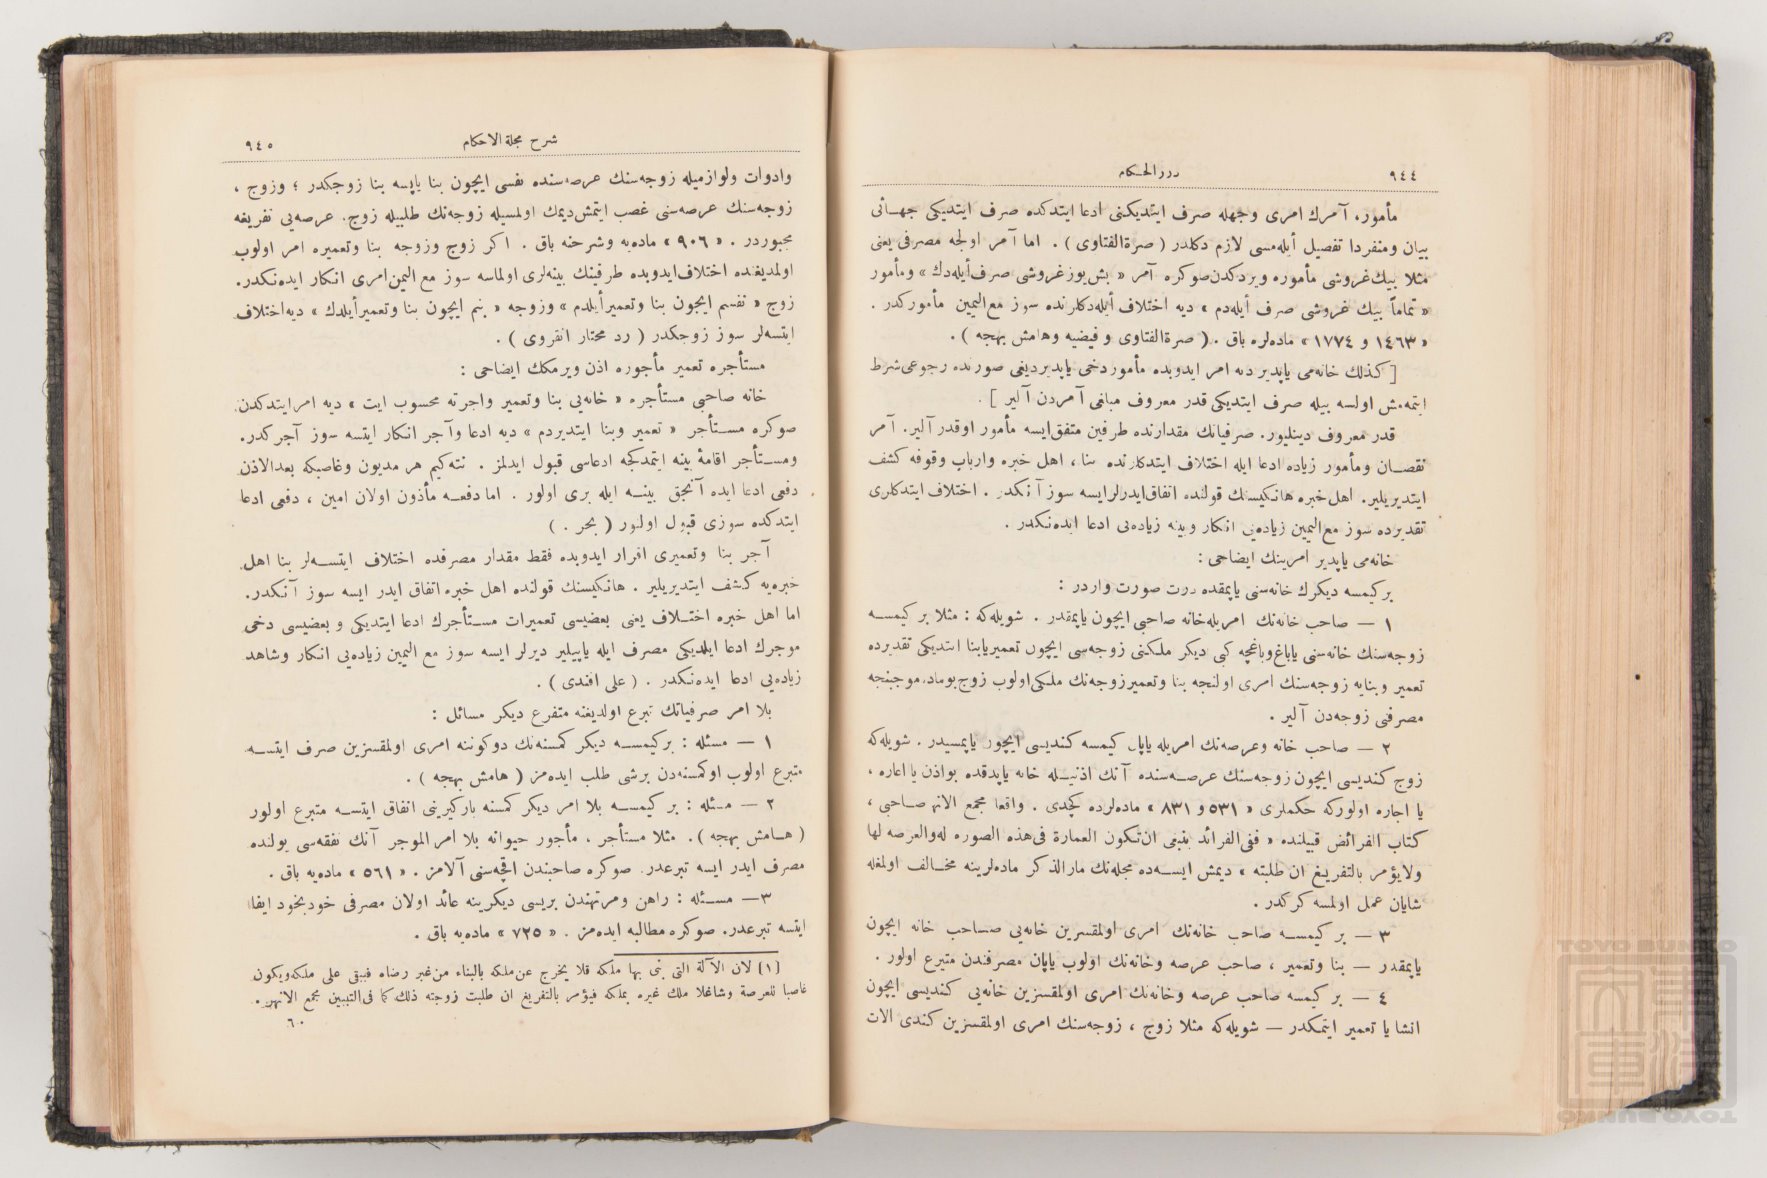 ٩٤٤
درر الحكام
مأمور، آمرك امرى وجهله صرف ايتديكنى ادعا ايتدكده صرف ايتديكى جهاتى
بيان ومنفردا تفصيل أيله‌مسى لازم دكلدر ( صرة الفتاوى ) . اما آمر اولجه مصرفى يعنى
مثلا بيك غروشى مأموره ويردكدن صوكره آمر « بش يوز غروشى صرف أيله‌دك » ومأمور
« تماماً بيك غروشى صرف أيله‌دم » ديه اختلاف أيله‌دكلرنده سوز مع اليمين مأموركدر .
« ١٤٦٣ و ١٧٧٤ » ماده‌لره باق . ( صرة الفتاوى و فيضيه وهامش بهجه ) .
[ كذلك خانه‌مى ياپدير ديه امر ايدوبده مأمور دخى ياپديرديغى صورتده رجوعى شرط
ايتمه‌مش اولسه بيله صرف ايتديكى قدر معروف مبلغى آمردن آلير ] .
قدر معروف دينليور. صرفياتك مقدارنده طرفين متفق ايسه مأمور اوقدر آلير. آمر
نقصان ومأمور زياده ادعا ايله اختلاف ايتدكلرنده بنا ، اهل خبره وارباب وقوفه كشف
ايتديريلير. اهل خبره هانكيسنك قولنده اتفاق ايدرلر ايسه سوز آنكدر . اختلاف ايتدكلرى
تقديرده سوز مع اليمين زياده‌يى انكار وبينه زياده‌يى ادعا ايده‌نكدر .
خانه‌مى ياپدير امرينك ايضاحى :
بر كيمسه ديكرك خانه‌سنى ياپمقده درت صورت واردر :
١ — صاحب خانه‌نك امريله خانه صاحبى ايچون ياپمقدر . شويله‌كه : مثلا بر كيمسه
زوجه‌سنك خانه‌سنى يا باغ وباغچه كبى ديكر ملكنى زوجه‌سى ايچون تعمير يا بنا ايتديكى تقديرده
تعمير وبنايه زوجه‌سنك امرى اولنجه بنا وتعمير زوجه‌نك ملكى اولوب زوج بو ماده موجبنجه
مصرفنى زوجه‌دن آلير .
٢ — صاحب خانه وعرصه‌نك امريله ياپان كيمسه كنديسى ايچون ياپمسيدر . شويله‌كه
زوج كنديسى ايچون زوجه‌سنك عرصه‌سنده آنك اذنيله خانه ياپدقده بو اذن يا اعاره ،
يا اجاره اولوركه حكملرى « ٥٣١ و ٨٣١ » ماده‌لرده كچدى . واقعا مجمع الانهر صاحبى ،
كتاب الفرائض قبيلنده « ففى الفرائد ينبغى ان تكون العمارة فى هذه الصوره له والعرصه لها
ولا يؤمر بالتفريغ ان طلبته » ديمش ايسه‌ده مجله‌نك مار الذكر ماده‌لرينه مخالف اولمغله
شايان عمل اولمسه كركدر .
٣ — بر كيمسه صاحب خانه‌نك امرى اولمقسزين خانه‌يى صاحب خانه ايچون
ياپمقدر — بنا وتعمير ، صاحب عرصه وخانه‌نك اولوب ياپان مصرفندن متبرع اولور .
٤ — بر كيمسه صاحب عرصه وخانه‌نك امرى اولمقسزين خانه‌يى كنديسى ايچون
انشا يا تعمير ايتمكدر — شويله‌كه مثلا زوج ، زوجه‌سنك امرى اولمقسزين كندى الات
شرح مجلة الاحكام
٩٤٥
وادوات ولوازميله زوجه‌سنك عرصه‌سنده نفسى ايچون بنا ياپسه بنا زوجكدر ؛ وزوج ،
زوجه‌سنك عرصه‌سنى غصب ايتمش ديمك اولمسيله زوجه‌نك طلبيله زوج. عرصه‌يى تفريغه
مجبوردر . « ٩٠٦ » ماده‌يه وشرحنه باق . اكر زوج وزوجه بنا وتعميره امر اولوب
اولمديغنده اختلاف ايدوبده طرفينك بينه‌لرى اولماسه سوز مع اليمين امرى انكار ايده‌نكدر.
زوج « نفسم ايچون بنا وتعمير أيلدم » وزوجه « بنم ايچون بنا وتعمير أيلدك » ديه اختلاف
ايتسه‌لر سوز زوجكدر ( رد محتار انقروى ) .
مستأجره تعمير مأجوره اذن ويرمكك ايضاحى :
خانه صاحبى مستأجره « خانه‌يى بنا وتعمير واجرته محسوب ايت » ديه امر ايتدكدن
صوكره مستأجر « تعمير وبنا ايتديردم » ديه ادعا وآجر انكار ايتسه سوز آجركدر.
ومستأجر اقامهٔ بينه ايتمدكجه ادعاسى قبول ايدلمز . نته‌كيم هر مديون وغاصبكه بعد الاذن
دفعى ادعا ايده آنجق بينه ايله برى اولور . اما دفعه مأذون اولان امين ، دفعى ادعا
ايتدكده سوزى قبول اولنور ( بحر . )
آجر بنا وتعميرى اقرار ايدوبده فقط مقدار مصرفده اختلاف ايتسه‌لر بنا اهل
خبره‌يه كشف ايتديريلير . هانكيسنك قولنده اهل خبره اتفاق ايدر ايسه سوز آنكدر.
اما اهل خبره اختلاف يعنى بعضيسى تعميرات مستأجرك ادعا ايتديكى و بعضيسى دخى
موجرك ادعا ايلديكى مصرف ايله ياپيلير ديرلر ايسه سوز مع اليمين زياده‌يى انكار وشاهد
زياده‌يى ادعا ايده‌نكدر . ( على افندى ) .
بلا امر صرفياتك تبرع اولديغنه متفرع ديكر مسائل :
١ — مسئله : بر كيمسه ديكر كمسنه‌نك دوكوننه امرى اولمقسزين صرف ايتسه
متبرع اولوب او كمسنه‌دن برشى طلب ايده‌مز ( هامش بهجه ) .
٢ — مسئله : بر كيمسه بلا امر ديكر كمسنه باركيرينى اتفاق ايتسه متبرع اولور
( هامش بهجه ). مثلا مستأجر ، مأجور حيوانه بلا امر الموجر آنك نفقه‌سى يولنده
مصرف ايدر ايسه تبرعدر. صوكره صاحبندن اقچه‌سنى آلامز . « ٥٦١ » ماده‌يه باق .
٣— مسئله : راهن ومرتهندن بريسى ديكرينه عائد اولان مصرفى خود بخود ايفا
ايتسه تبرعدر. صوكره مطالبه ايده‌مز . « ٧٢٥ » ماده‌يه باق .
[١] لان الآلة التى بنى بها ملكه فلا يخرج عن ملكه بالبناء من غير رضاه فيبقى على ملكه ويكون
غاصبا للعرصة وشاغلا ملك غيره بملكه فيؤمر بالتفريغ ان طلبت زوجته ذلك كما فى التبيين مجمع الانهر .
٦٠
TOYO BUNKO